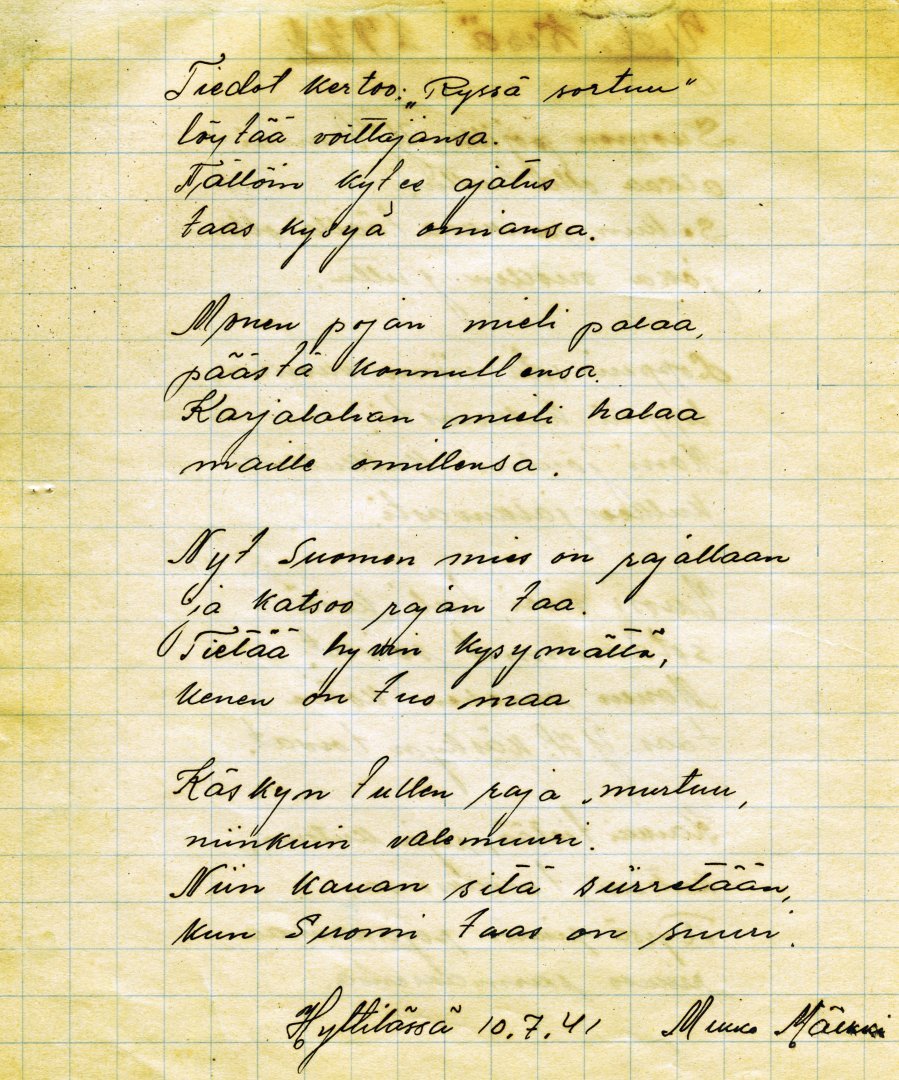 Tiedot kertoo: „Ryssä sortuu"
löytää voittajansa.
Tällöin kytee ajatus
taas kysyä omiansa.
Monen pojan mieli palaa,
päästä konnullensa.
Karjalahan mieli halaa
maille omillensa.
Nyt Suomen mies on rajallaan
ja katsoo rajan taa.
Tietää hyvin kysymättä,
kenen on tuo maa
Käskyn tullen raja murtuu,
niinkuin valemuuri.
Niin kauan sitä siirretään,
kun Suomi taas on suuri.
Hyttilässä 10.7.41 Mikko